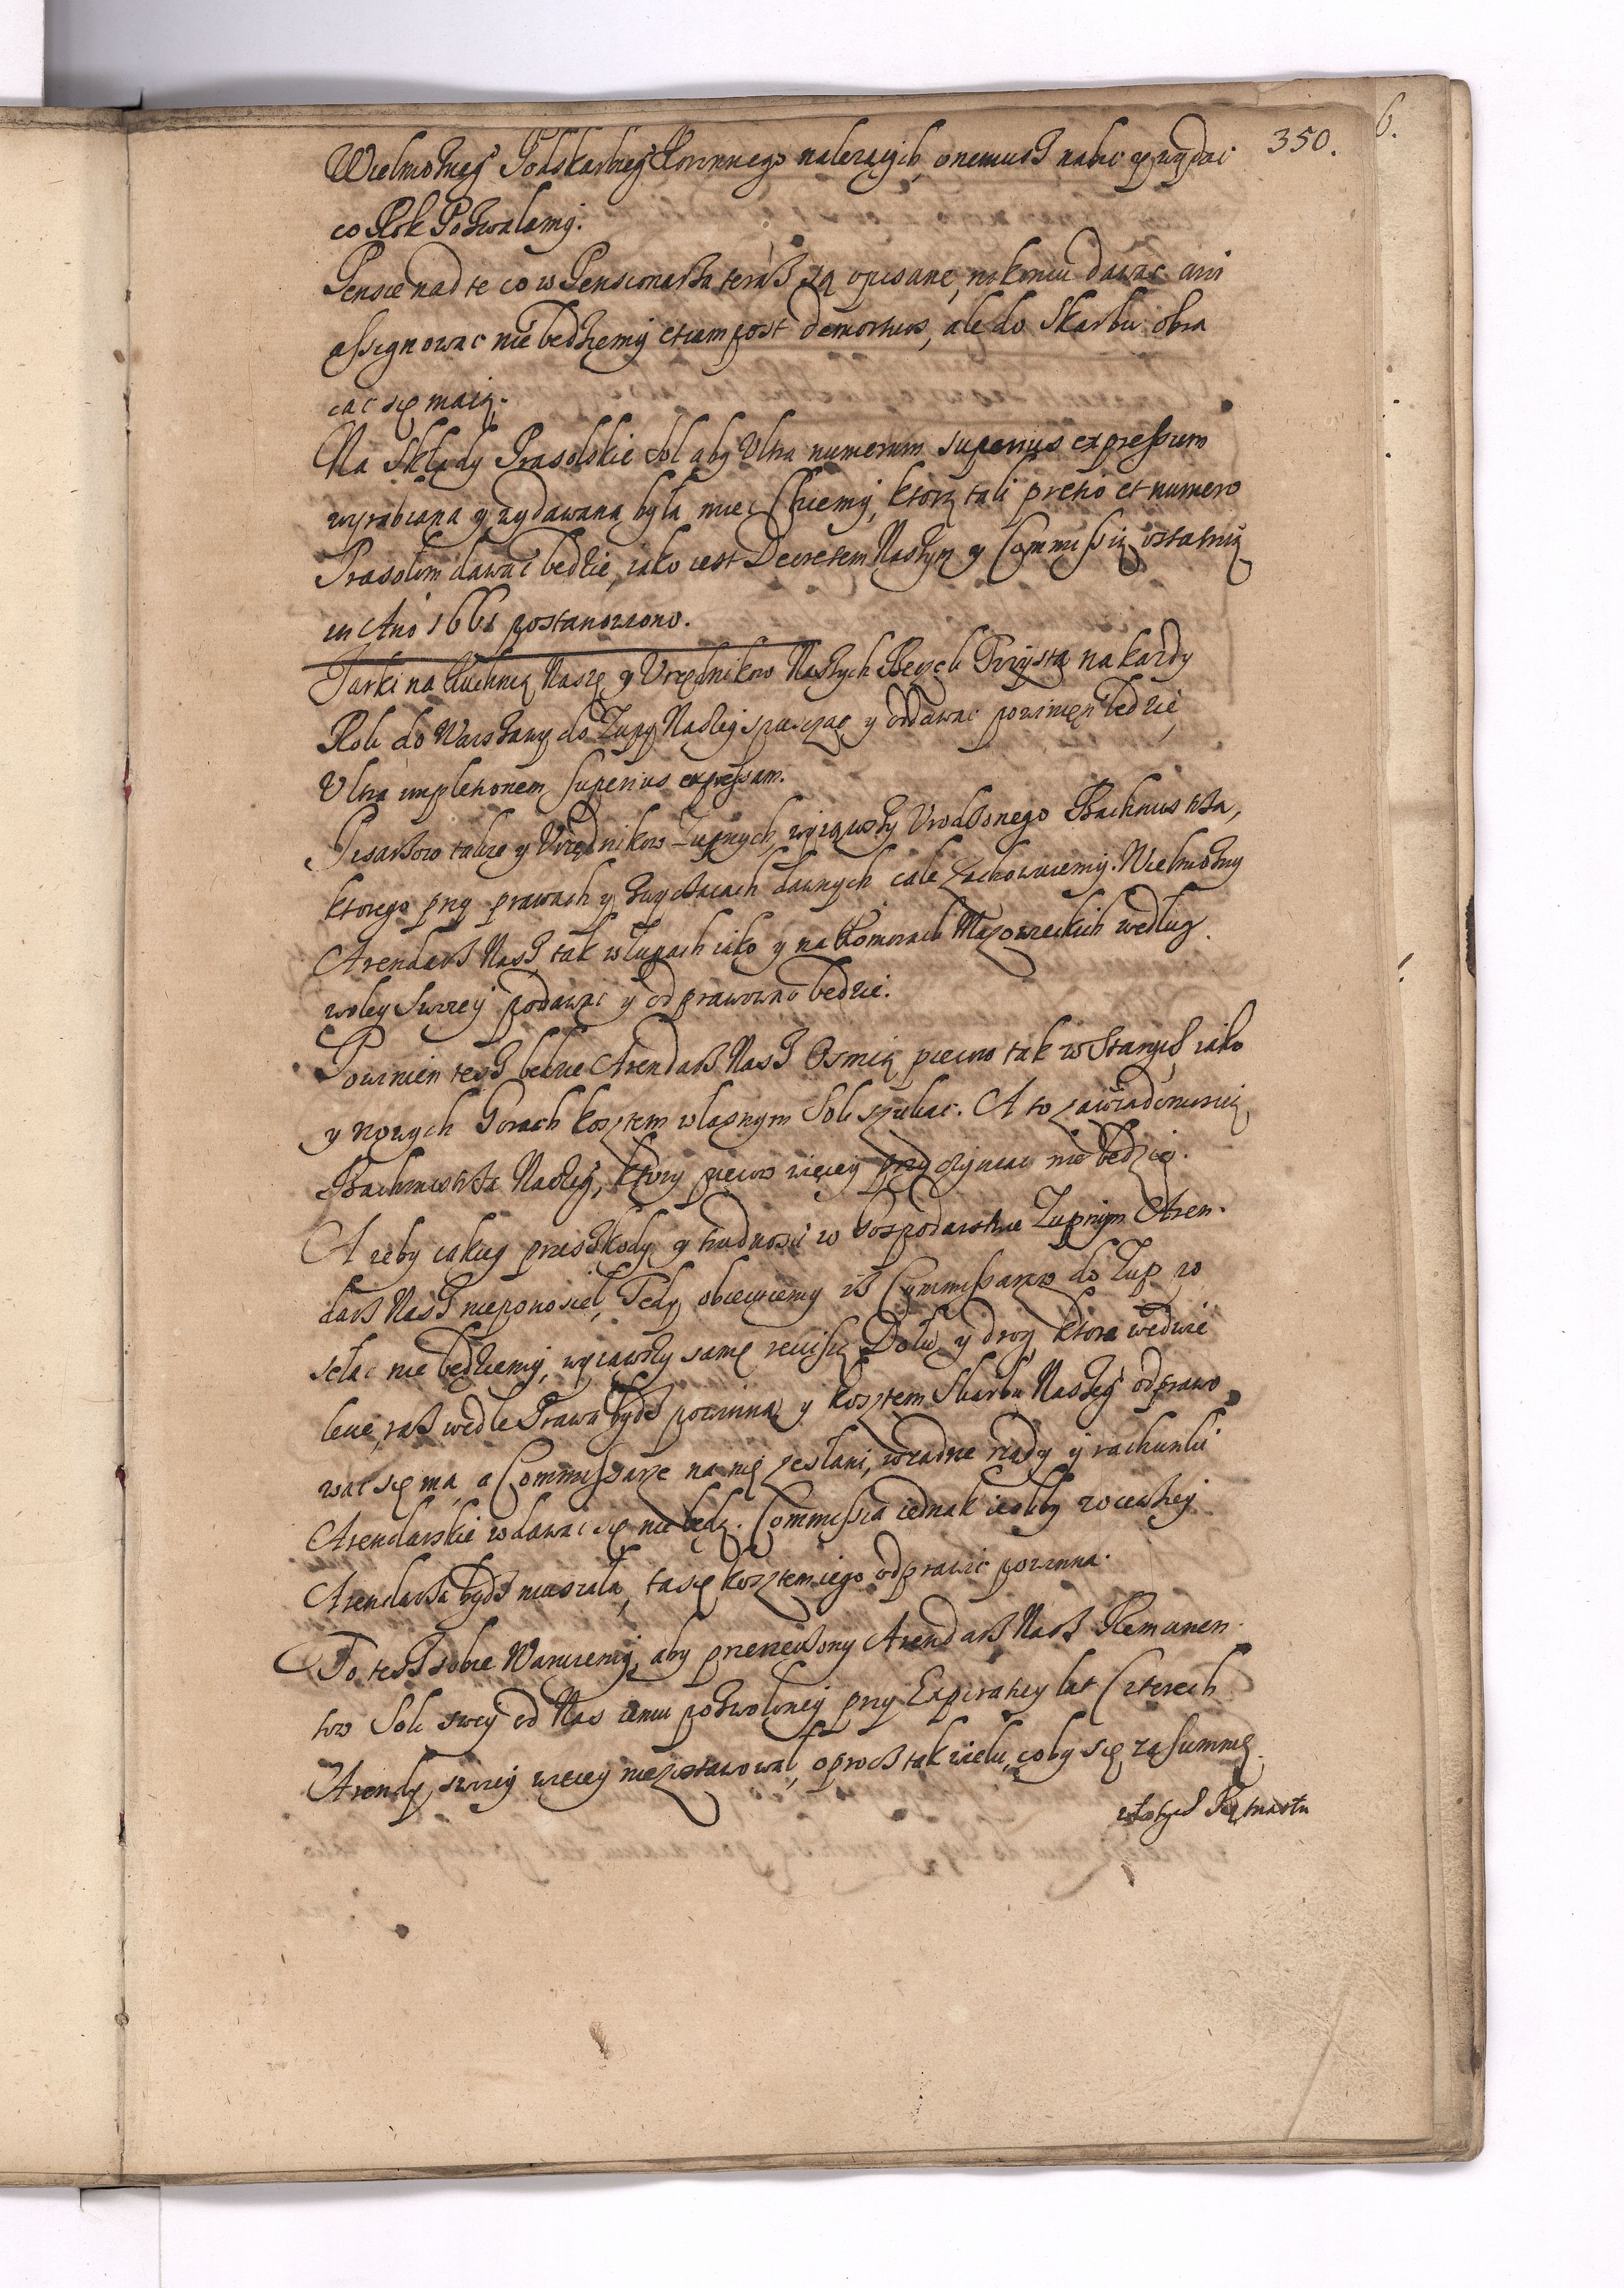 350.
6.
Wielmożneg° Podskarbieg° Koronnego nalezących, onemusz nabic y wydac
co Rok Pozwalamy.
Pensie nad te co w Pensionarza teraß są opisane, nikomu dawac ani
assignowac nie będziemy etiam post demortuos, ale do Skarbu obra
cac się maią.
Na Składy Prasolskie Sol aby Ultra numerum superius expressum
wyrabiana y wydawana była miec Chcemy, ktorą tali pretio et numero
Prasolom dawac będzie, iako iest Decretem Naszym y Commissią ostatnią
in Ano 1661 postanowiono.
Tarki na Kuchnią Naszę y Urzędnikow Naszych Beczek Trzysta na kazdy
Rok do Warszawy do Zupy Naszey spuszczac y oddawac powinien będzie,
Ultra impletionem superius expressam.
Pisarzow także y Urzędnikow Zupnych, wyiąwszy Urodzonego Bachmistrza,
ktorego przy prawach y zwyczaiach dawnych cale zachowuiemy. Wielmożny
Arendarz Nasz, tak w Zupach iako y na Komorach Mazowieckich według
woley Swoiey podawac y odprawowac będzie.
Powinien tesz będzie Arendarz Nasz Osmią piecow tak w Starych, iako
y nowych Gorach kosztem własnym Soli szukac. A to za wiadomoscią
Bachmistrza Naszeg°, ktory piecow więcey przyczyniac nie będzie.
A zeby iakiey przeszkody y trudnosci w Gospodarstwie Zupnym Aren-
darz Nasz nieponosieł, Tedy obiecuiemy iß Commissarzow do Zup ze
sełac nie będziemy, wyiąwszy samę rewisią Dołow y drog, ktora we dwie
lecie, raß wedle Prawa bydź powinna y kosztem Skarbu Naszeg° odprawo
wac się ma, a Commissarze na nię zesłani, w zadne rządy y rachunki
Arendarskie wdawac się nie będą. Commissia iednak iesliby zocewszey
Arendarza bydź musiała, ta się kosztem iego odprawic powinna.
To tesz sobie Waruiemy, aby przerzeczony Arendarz Nasz Remanen-
tow Soli swey od Nas iemu pozwolonej przy Expiratiey lat Czterech
Arendy swoiey więcey niezostawował, oprocz tak wielu, coby się za summę